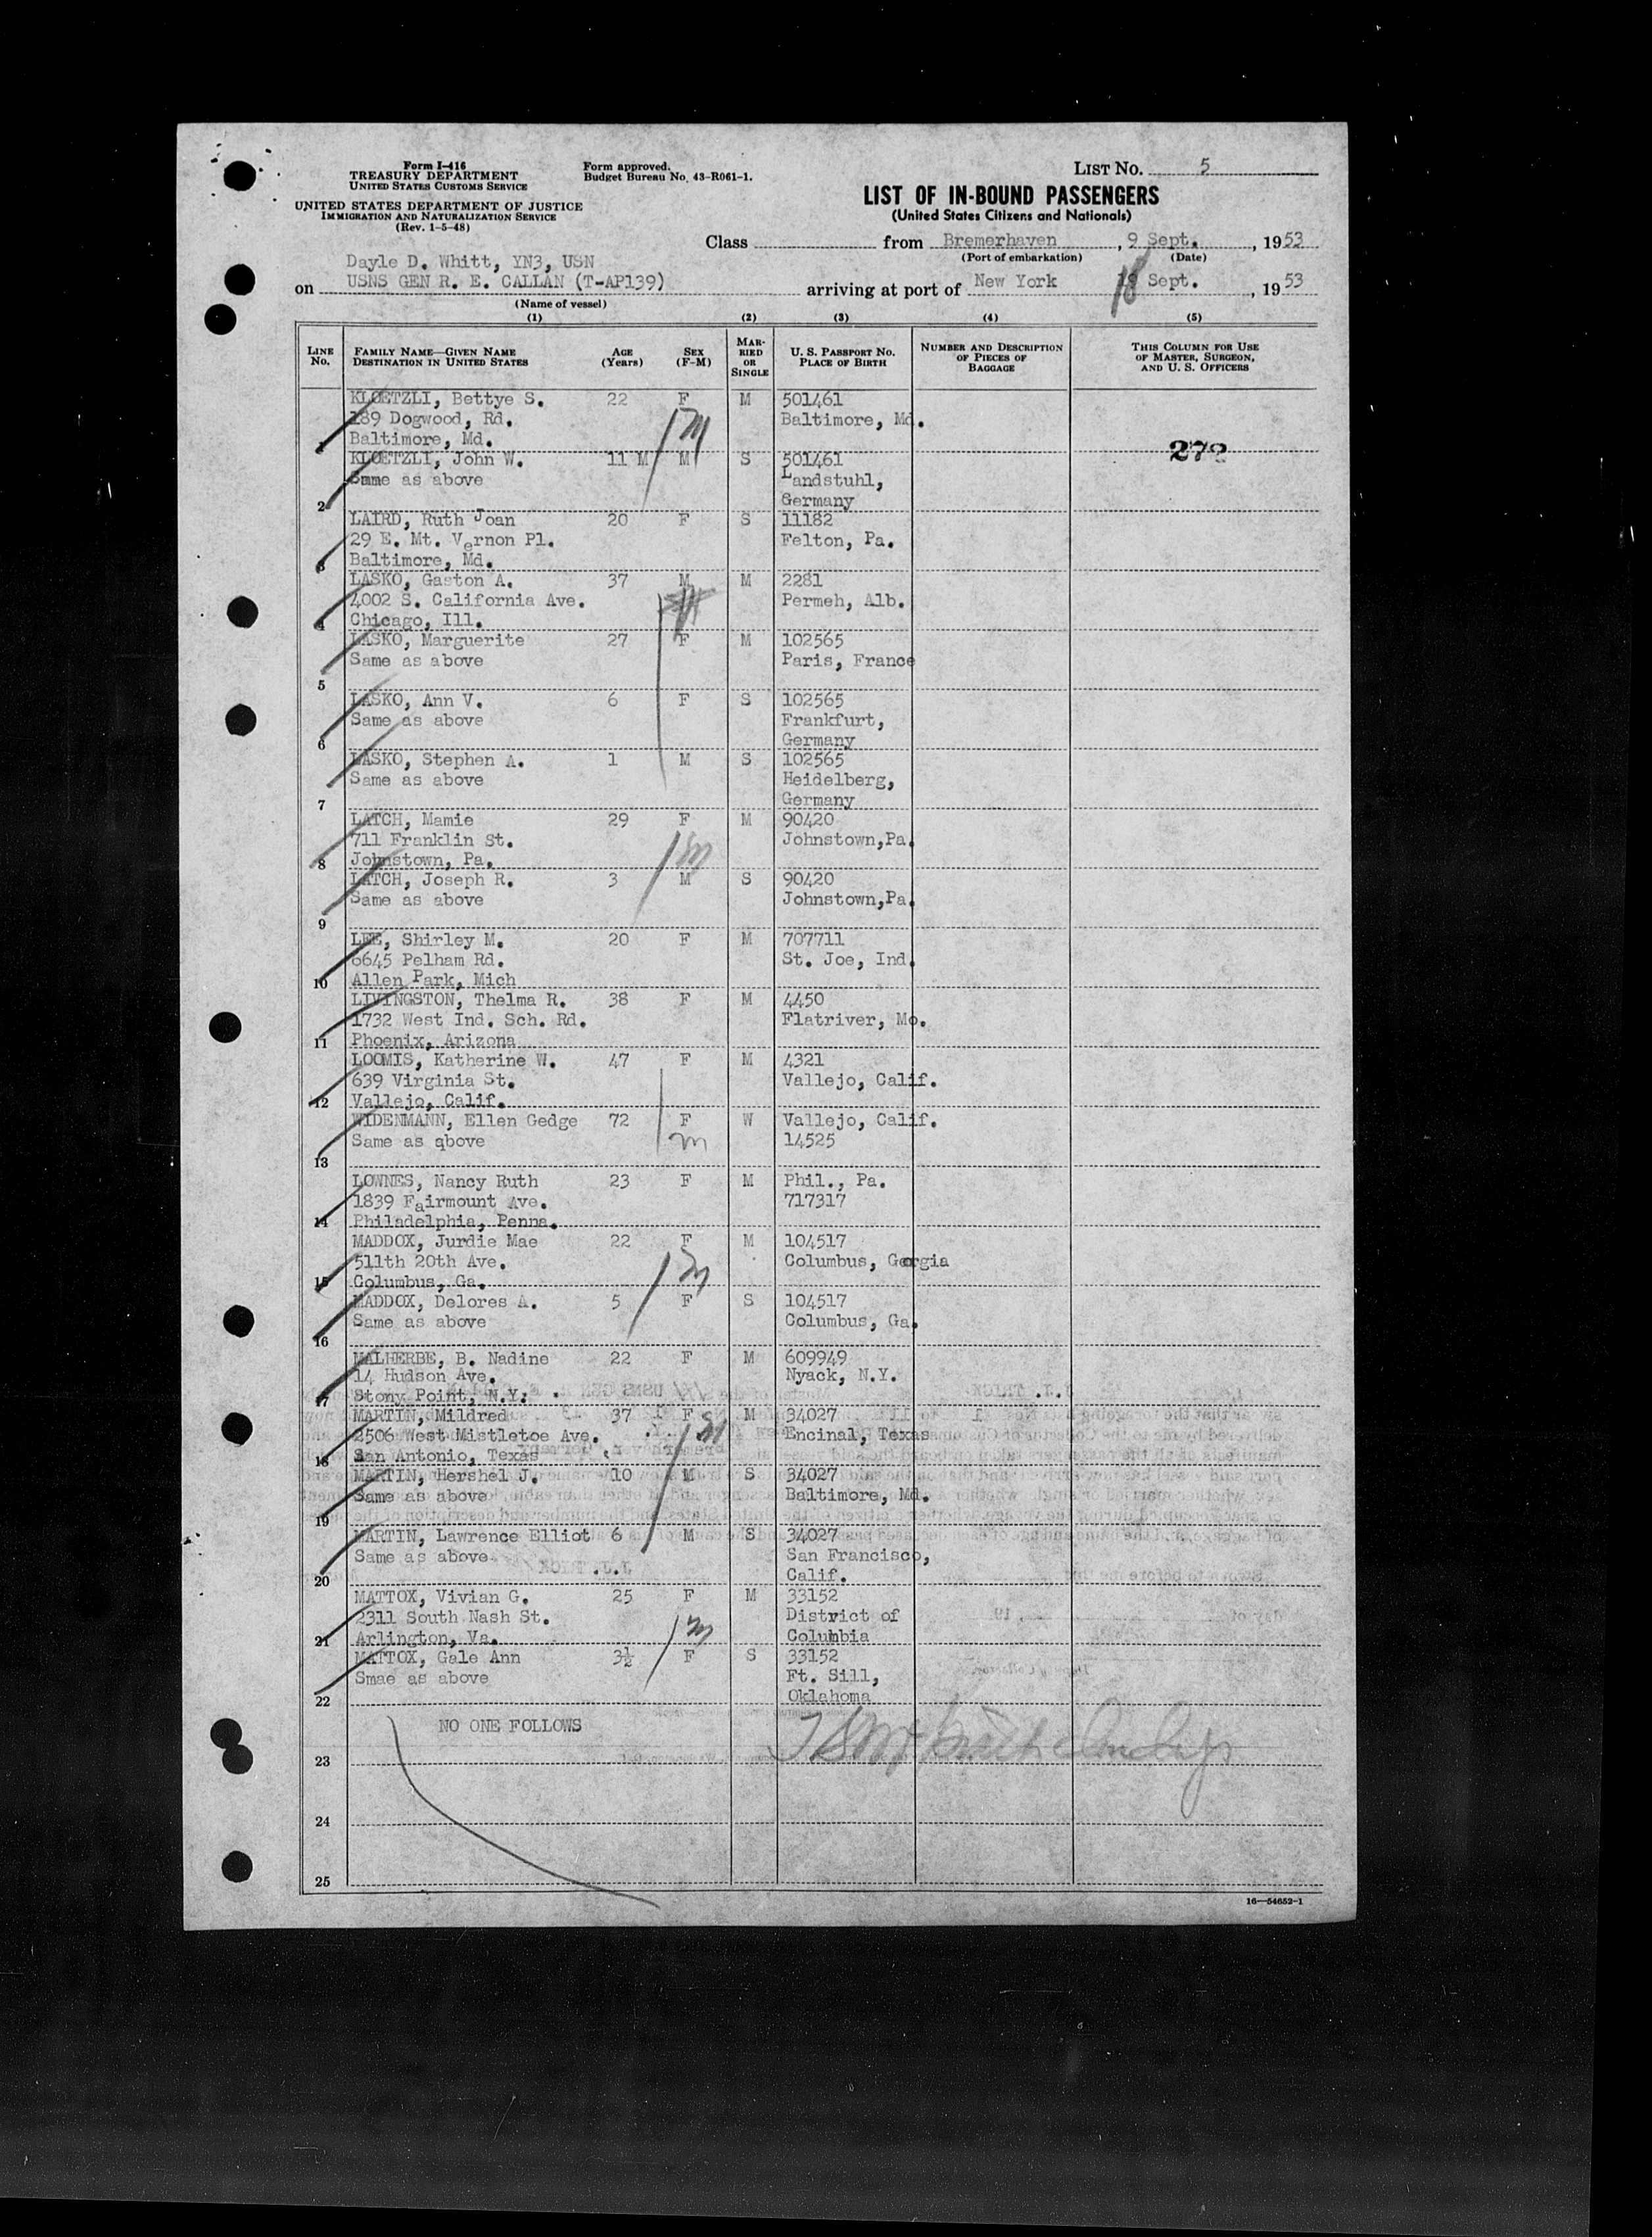 Form I-416
TREASURY DEPARTMENT
UNITED STATES CUSTOMS SERVICE
UNITED STATES DEPARTMENT OF JUSTICE
IMMIGRATION AND NATURALIZATION SERVICE
(Rev. 1-5-48)
Form approved.
Budget Bureau No. 43-R061-1.
LIST NO. 5
LIST OF IN-BOUND PASSENGERS
(United States Citizens and Nationals)
Class from Bremerhaven, 9 Sept., 1953
(Port of embarkation) (Date)
Dayle D. Whitt, YN3, USN
on USNS GEN R. E. CALLAN (T-AP139) arriving at port of New York 18 Sept., 1953
(Name of vessel)
(1) (2) (3) (4) (5)
LINE NO. FAMILY NAME—GIVEN NAME DESTINATION IN UNITED STATES AGE (Years) SEX (F-M) MARRIED OR SINGLE U. S. PASSPORT NO. PLACE OF BIRTH NUMBER AND DESCRIPTION OF PIECES OF BAGGAGE THIS COLUMN FOR USE OF MASTER, SURGEON, AND U. S. OFFICERS
KLOETZLI, Bettye S. 22 F M 501461
189 Dogwood, Rd. Baltimore, Md.
1 Baltimore, Md.
272
KLOETZLI, John W. 11 M M S 501461
Same as above Landstuhl,
2 Germany
LAIRD, Ruth Joan 20 F S 11182
29 E. Mt. Vernon Pl. Felton, Pa.
3 Baltimore, Md.
LASKO, Gaston A. 37 M M 2281
4002 S. California Ave. Permeh, Alb.
4 Chicago, Ill.
LASKO, Marguerite 27 F M 102565
Same as above Paris, France
5
LASKO, Ann V. 6 F S 102565
Same as above Frankfurt,
6 Germany
LASKO, Stephen A. 1 M S 102565
Same as above Heidelberg,
7 Germany
LATCH, Mamie 29 F M 90420
711 Franklin St. Johnstown,Pa.
8 Johnstown, Pa.
LATCH, Joseph R. 3 M S 90420
Same as above Johnstown,Pa.
9
LEE, Shirley M. 20 F M 707711
6645 Pelham Rd. St. Joe, Ind.
10 Allen Park, Mich
LIVINGSTON, Thelma R. 38 F M 4450
1732 West Ind. Sch. Rd. Flatriver, Mo.
11 Phoenix, Arizona
LOOMIS, Katherine W. 47 F M 4321
639 Virginia St. Vallejo, Calif.
12 Vallejo, Calif.
WIDENMANN, Ellen Gedge 72 F W Vallejo, Calif.
Same as qbove m 14525
13
LOWNES, Nancy Ruth 23 F M Phil., Pa.
1839 Fairmount Ave. 717317
14 Philadelphia, Penna.
MADDOX, Jurdie Mae 22 F M 104517
511th 20th Ave. Columbus, Georgia
15 Columbus, Ga.
MADDOX, Delores A. 5 F S 104517
Same as above Columbus, Ga.
16
MALHERBE, B. Nadine 22 F M 609949
14 Hudson Ave. Nyack, N.Y.
17 Stony Point, N.Y.
MARTIN, Mildred 37 F M 34027
2506 West Mistletoe Ave. Encinal, Texas
18 San Antonio, Texas
MARTIN, Hershel J. 10 M S 34027
Same as above Baltimore, Md.
19
MARTIN, Lawrence Elliot 6 M S 34027
Same as above San Francisco,
20 Calif.
MATTOX, Vivian G. 25 F M 33152
2311 South Nash St. District of
21 Arlington, Va. Columbia
MATTOX, Gale Ann 3½ F S 33152
Smae as above Ft. Sill,
22 Oklahoma
NO ONE FOLLOWS
23
24
25
16—54652-1